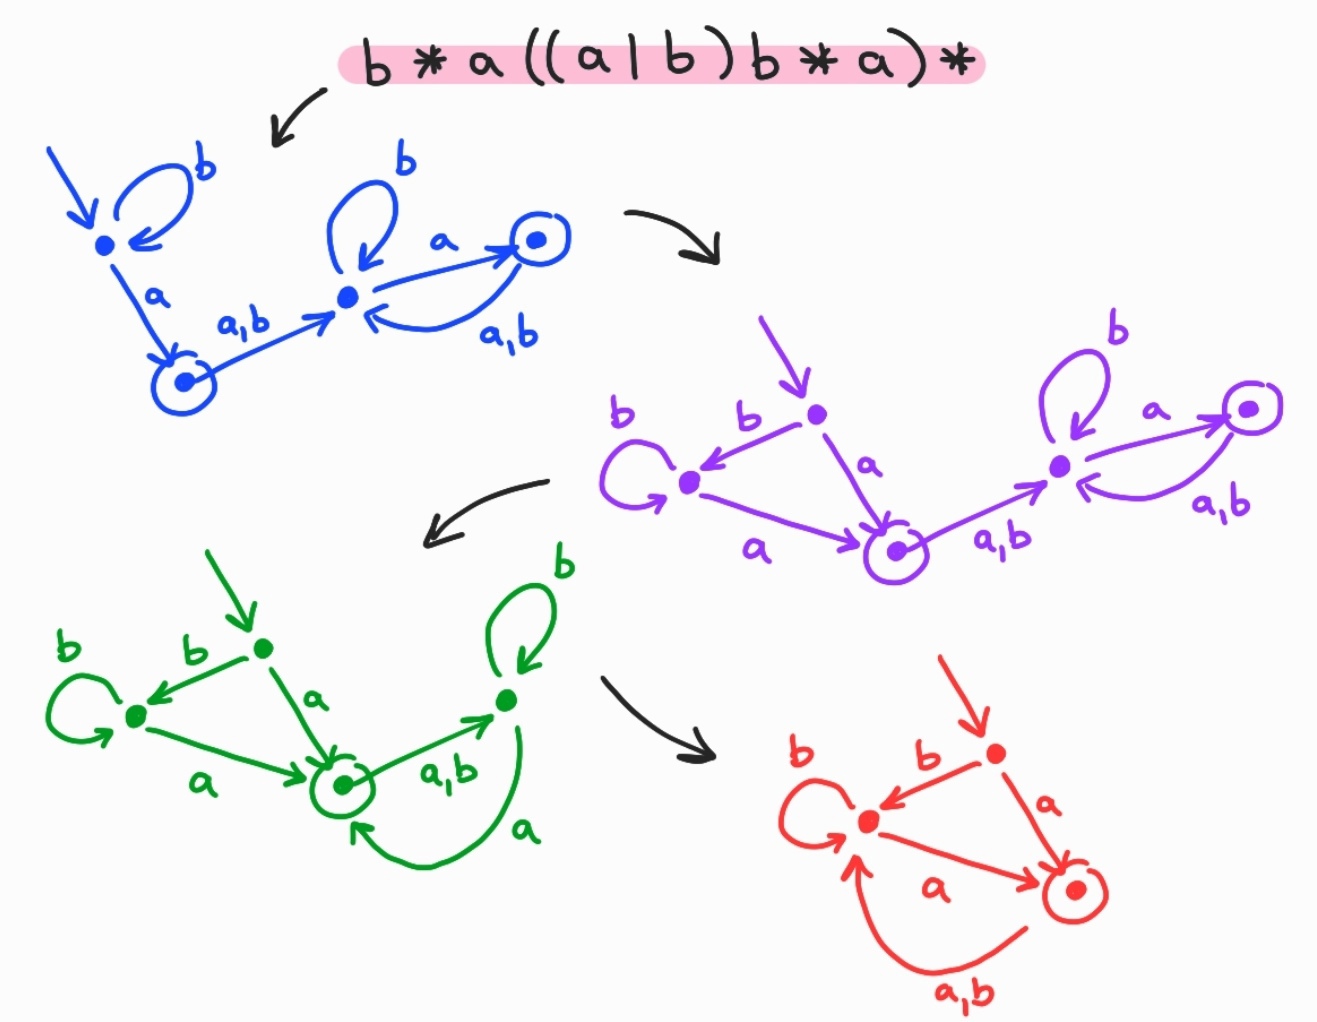 b * a ((a | b) b * a) *
b
b
a
a
a,b
a,b
b
b
b
a
a
a,b
a
a,b
b
b
b
a
a
a,b
a
b
b
a
a
a,b